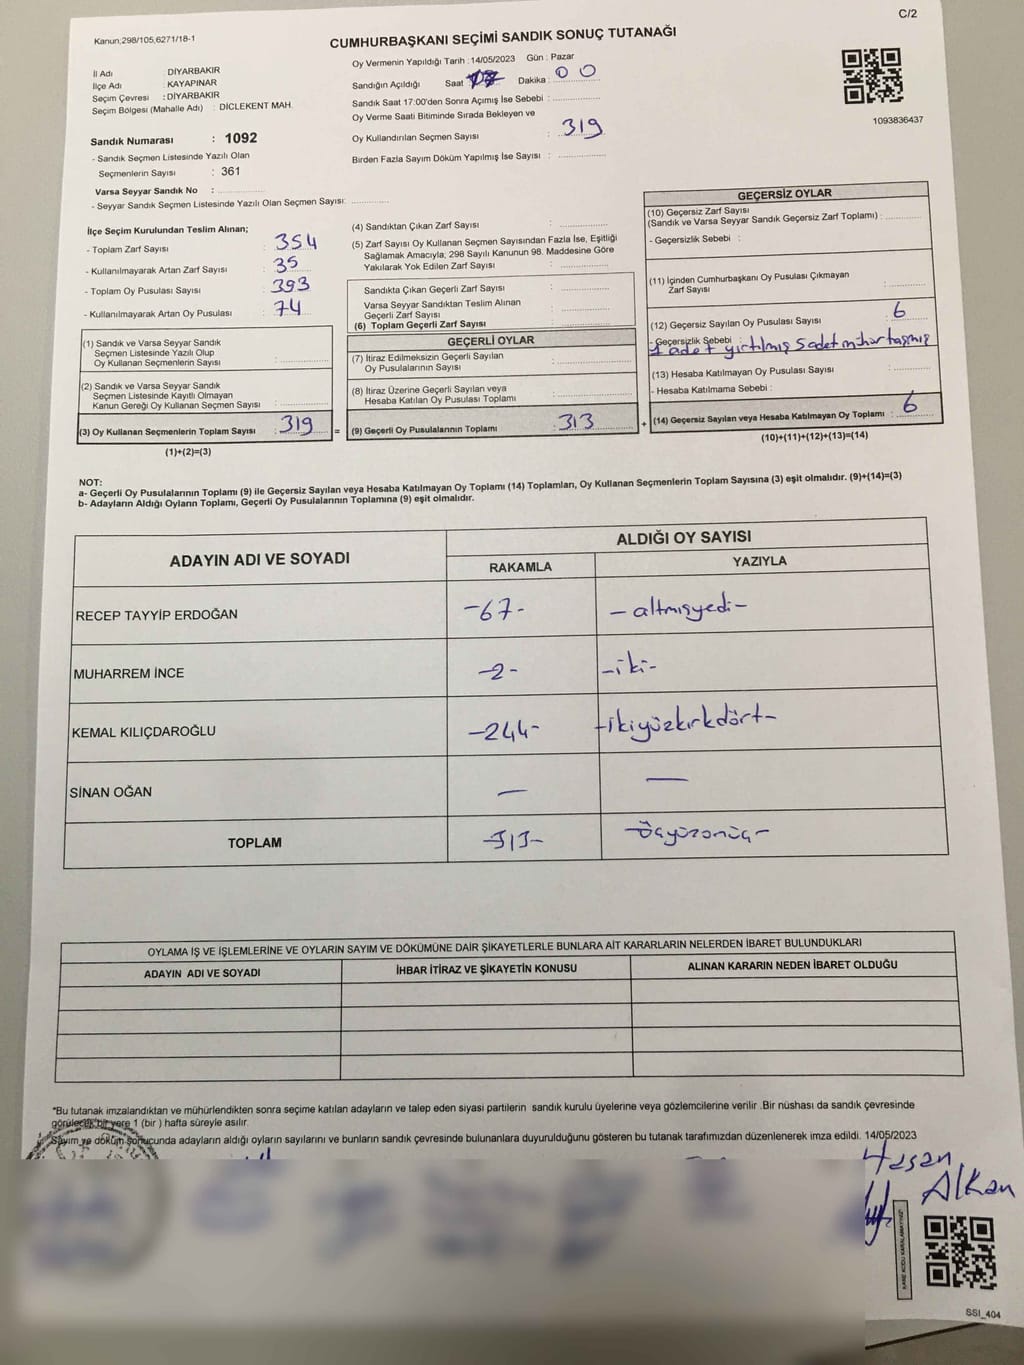 C/2
Kanun,298/105,6271/18-1
CUMHURBAŞKANI SEÇİMİ SANDIK SONUÇ TUTANAĞI
İl Adı : DİYARBAKIR
İlçe Adı : KAYAPINAR
Seçim Çevresi : DİYARBAKIR
Seçim Bölgesi (Mahalle Adı) : DİCLEKENT MAH.
Sandık Numarası : 1092
- Sandık Seçmen Listesinde Yazılı Olan
Seçmenlerin Sayısı : 361
Varsa Seyyar Sandık No :
- Seyyar Sandık Seçmen Listesinde Yazılı Olan Seçmen Sayısı:
Oy Vermenin Yapıldığı Tarih :14/05/2023 Gün : Pazar
Sandığın Açıldığı Saat Dakika : 00
Sandık Saat 17:00'den Sonra Açımış İse Sebebi :
Oy Verme Saati Bitiminde Sırada Bekleyen ve
Oy Kullandırılan Seçmen Sayısı : 319
Birden Fazla Sayım Döküm Yapılmış İse Sayısı :
1093836437
İlçe Seçim Kurulundan Teslim Alınan;
- Toplam Zarf Sayısı : 354
- Kullanılmayarak Artan Zarf Sayısı : 35
- Toplam Oy Pusulası Sayısı : 393
- Kullanılmayarak Artan Oy Pusulası : 74
(1) Sandık ve Varsa Seyyar Sandık
Seçmen Listesinde Yazılı Olup
Oy Kullanan Seçmenlerin Sayısı :
(2) Sandık ve Varsa Seyyar Sandık
Seçmen Listesinde Kayıtlı Olmayan
Kanun Gereği Oy Kullanan Seçmen Sayısı :
(3) Oy Kullanan Seçmenlerin Toplam Sayısı : 319 =
(1)+(2)=(3)
(4) Sandıktan Çıkan Zarf Sayısı :
(5) Zarf Sayısı Oy Kullanan Seçmen Sayısından Fazla İse, Eşitliği
Sağlamak Amacıyla, 298 Sayılı Kanunun 98. Maddesine Göre
Yakılarak Yok Edilen Zarf Sayısı :
Sandıkta Çıkan Geçerli Zarf Sayısı :
Varsa Seyyar Sandıktan Teslim Alınan
Geçerli Zarf Sayısı :
(6) Toplam Geçerli Zarf Sayısı :
GEÇERLİ OYLAR
(7) İtiraz Edilmeksizin Geçerli Sayılan
Oy Pusulalarının Sayısı :
(8) İtiraz Üzerine Geçerli Sayılan veya
Hesaba Katılan Oy Pusulası Toplamı :
(9) Geçerli Oy Pusulalarının Toplamı : 313 +
GEÇERSİZ OYLAR
(10) Geçersiz Zarf Sayısı
(Sandık ve Varsa Seyyar Sandık Geçersiz Zarf Toplamı) :
- Geçersizlik Sebebi :
(11) İçinden Cumhurbaşkanı Oy Pusulası Çıkmayan
Zarf Sayısı :
(12) Geçersiz Sayılan Oy Pusulası Sayısı : 6
- Geçersizlik Sebebi :
1 adet yırtılmış 5 adet mühür taşmış
(13) Hesaba Katılmayan Oy Pusulası Sayısı :
- Hesaba Katılmama Sebebi :
(14) Geçersiz Sayılan veya Hesaba Katılmayan Oy Toplamı : 6
(10)+(11)+(12)+(13)=(14)
NOT:
a- Geçerli Oy Pusulalarının Toplamı (9) ile Geçersiz Sayılan veya Hesaba Katılmayan Oy Toplamı (14) Toplamları, Oy Kullanan Seçmenlerin Toplam Sayısına (3) eşit olmalıdır. (9)+(14)=(3)
b- Adayların Aldığı Oyların Toplamı, Geçerli Oy Pusulalarının Toplamına (9) eşit olmalıdır.
ADAYIN ADI VE SOYADI
ALDIĞI OY SAYISI
RAKAMLA YAZIYLA
RECEP TAYYİP ERDOĞAN -67- -altmışyedi-
MUHARREM İNCE -2- -iki-
KEMAL KILIÇDAROĞLU -244- -ikiyüzkırkdört-
SİNAN OĞAN - -
TOPLAM -313- -üçyüzonüç-
OYLAMA İŞ VE İŞLEMLERİNE VE OYLARIN SAYIM VE DÖKÜMÜNE DAİR ŞİKAYETLERLE BUNLARA AİT KARARLARIN NELERDEN İBARET BULUNDUKLARI
ADAYIN ADI VE SOYADI İHBAR İTİRAZ VE ŞİKAYETİN KONUSU ALINAN KARARIN NEDEN İBARET OLDUĞU
*Bu tutanak imzalandıktan ve mühürlendikten sonra seçime katılan adayların ve talep eden siyasi partilerin sandık kurulu üyelerine veya gözlemcilerine verilir .Bir nüshası da sandık çevresinde
görülecek bir yere 1 (bir ) hafta süreyle asılır.
Sayım ve döküm sonucunda adayların aldığı oyların sayılarını ve bunların sandık çevresinde bulunanlara duyurulduğunu gösteren bu tutanak tarafımızdan düzenlenerek imza edildi. 14/05/2023
Hasan
Alkan
KARE KODU KARALAMAYINIZ!
SSI_404